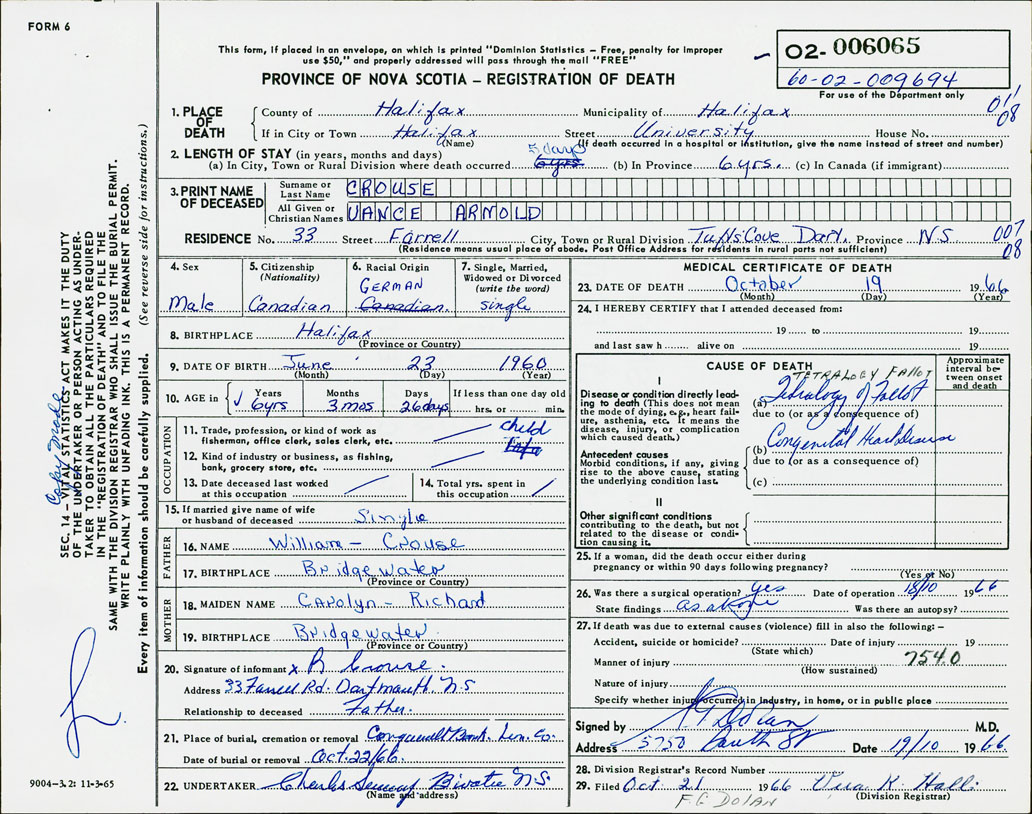 FORM 6
This form, if placed in an envelope, on which is printed "Dominion Statistics – Free, penalty for improper
use $50," and properly addressed will pass through the mail "FREE"
PROVINCE OF NOVA SCOTIA – REGISTRATION OF DEATH
02- 006065
60-02-009694
For use of the Department only
011
08
1. PLACE OF DEATH
County of Halifax Municipality of Halifax
If in City or Town Halifax Street University House No.
(Name) (If death occurred in a hospital or institution, give the name instead of street and number)
2. LENGTH OF STAY (in years, months and days)
5 days
(a) In City, Town or Rural Division where death occurred 6yrs (b) In Province 6yrs. (c) In Canada (if immigrant)
3. PRINT NAME OF DECEASED
Surname or Last Name CROUSE
All Given or Christian Names VANCE ARNOLD
RESIDENCE No. 33 Street Farrell City, Town or Rural Division Tufts Cove Dart. Province N.S
(Residence means usual place of abode. Post Office Address for residents in rural parts not sufficient)
007
08
4. Sex
Male
5. Citizenship
(Nationality)
Canadian
6. Racial Origin
GERMAN
Canadian
7. Single, Married,
Widowed or Divorced
(write the word)
single
8. BIRTHPLACE Halifax
(Province or Country)
9. DATE OF BIRTH June 23 1960
(Month) (Day) (Year)
10. AGE in
Years Months Days If less than one day old
6yrs 3mos 26days hrs. or min.
OCCUPATION
11. Trade, profession, or kind of work as
fisherman, office clerk, sales clerk, etc. child
12. Kind of industry or business, as fishing,
bank, grocery store, etc.
13. Date deceased last worked
at this occupation
14. Total yrs. spent in
this occupation
15. If married give name of wife
or husband of deceased Single
FATHER
16. NAME William – Crouse
17. BIRTHPLACE Bridgewater
(Province or Country)
MOTHER
18. MAIDEN NAME Carolyn – Richard
19. BIRTHPLACE Bridgewater
(Province or Country)
20. Signature of informant x R Crouse.
Address 33 Farrell Rd. Dartmouth. N.S
Relationship to deceased Father.
21. Place of burial, cremation or removal Co.
Date of burial or removal Oct. 22/66
22. UNDERTAKER Charles N.S
(Name and address)
MEDICAL CERTIFICATE OF DEATH
23. DATE OF DEATH October 19 1966
(Month) (Day) (Year)
24. I HEREBY CERTIFY that I attended deceased from:
19 to 19
and last saw h alive on 19
CAUSE OF DEATH
Approximate interval between onset and death
TETRALOGY FALLOT
I
Disease or condition directly leading to death (This does not mean
the mode of dying, e.g., heart failure, asthenia, etc. It means the
disease, injury, or complication
which caused death.)
(a) Tetralogy of Fallot
due to (or as a consequence of)
Antecedent causes
Morbid conditions, if any, giving
rise to the above cause, stating
the underlying condition last.
(b) Congenital Heart Disease
due to (or as a consequence of)
(c)
II
Other significant conditions
contributing to the death, but not
related to the disease or condition causing it.
25. If a woman, did the death occur either during
pregnancy or within 90 days following pregnancy?
(Yes or No)
26. Was there a surgical operation? yes Date of operation 18/10 1966
State findings as above Was there an autopsy?
27. If death was due to external causes (violence) fill in also the following: –
Accident, suicide or homicide? Date of injury 19
(State which)
Manner of injury 7540
(How sustained)
Nature of injury
Specify whether injury occurred in industry, in home, or in public place
Signed by F G Dolan M.D.
Address 5750 South St Date 19/10 1966
28. Division Registrar's Record Number
29. Filed Oct 21 1966 Vera K.
(Division Registrar)
F. G DOLAN
9004-3.2: 11-3-65
Copy Made
SEC. 14 – VITAL STATISTICS ACT MAKES IT THE DUTY
OF THE UNDERTAKER OR PERSON ACTING AS UNDER-
TAKER TO OBTAIN ALL THE PARTICULARS REQUIRED
IN THE "REGISTRATION OF DEATH" AND TO FILE THE
SAME WITH THE DIVISION REGISTRAR WHO SHALL ISSUE THE BURIAL PERMIT.
WRITE PLAINLY WITH UNFADING INK. THIS IS A PERMANENT RECORD.
Every item of information should be carefully supplied. (See reverse side for instructions.)